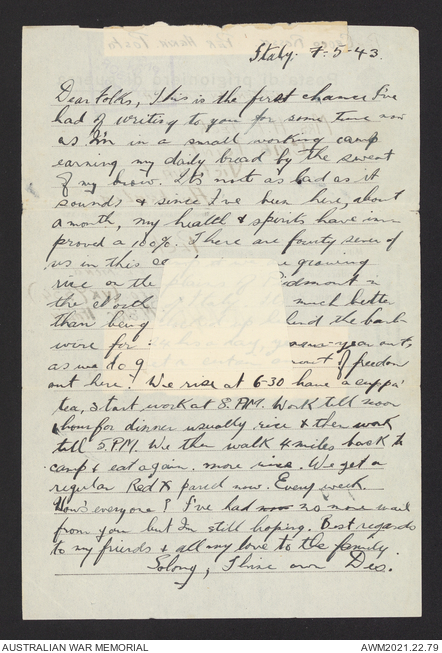 Italy. 7-5-43.
Dear Folks, This is the first chance I've
had of writing to you for some time now
as I'm in a small working camp
earning my daily bread by the sweat
of my brow. It's not as bad as it
sounds & since I've been here, about
a month, my health & spirits have im-
proved a 100%. There are fourty seven of
us in this growing
rice on the Piedmont in
the North much better
than being behind the barb
wire for year out,
as we do g amount of freedom
out here. We rise at 6-30 have a cuppa'
tea, start work at 8. P.M. Work till noon
1 hour for dinner usually rice & then work
till 5. P.M. We then walk 4 miles back to
camp & eat again, more rice. We get a
regular Red X parcel now. Every week.
How's everyone? I've had no more mail
from you but Im still hoping. Best regards
to my friends & all my love to the family.
Solong, Thine own Des.
AUSTRALIAN WAR MEMORIAL
AWM2021.22.79